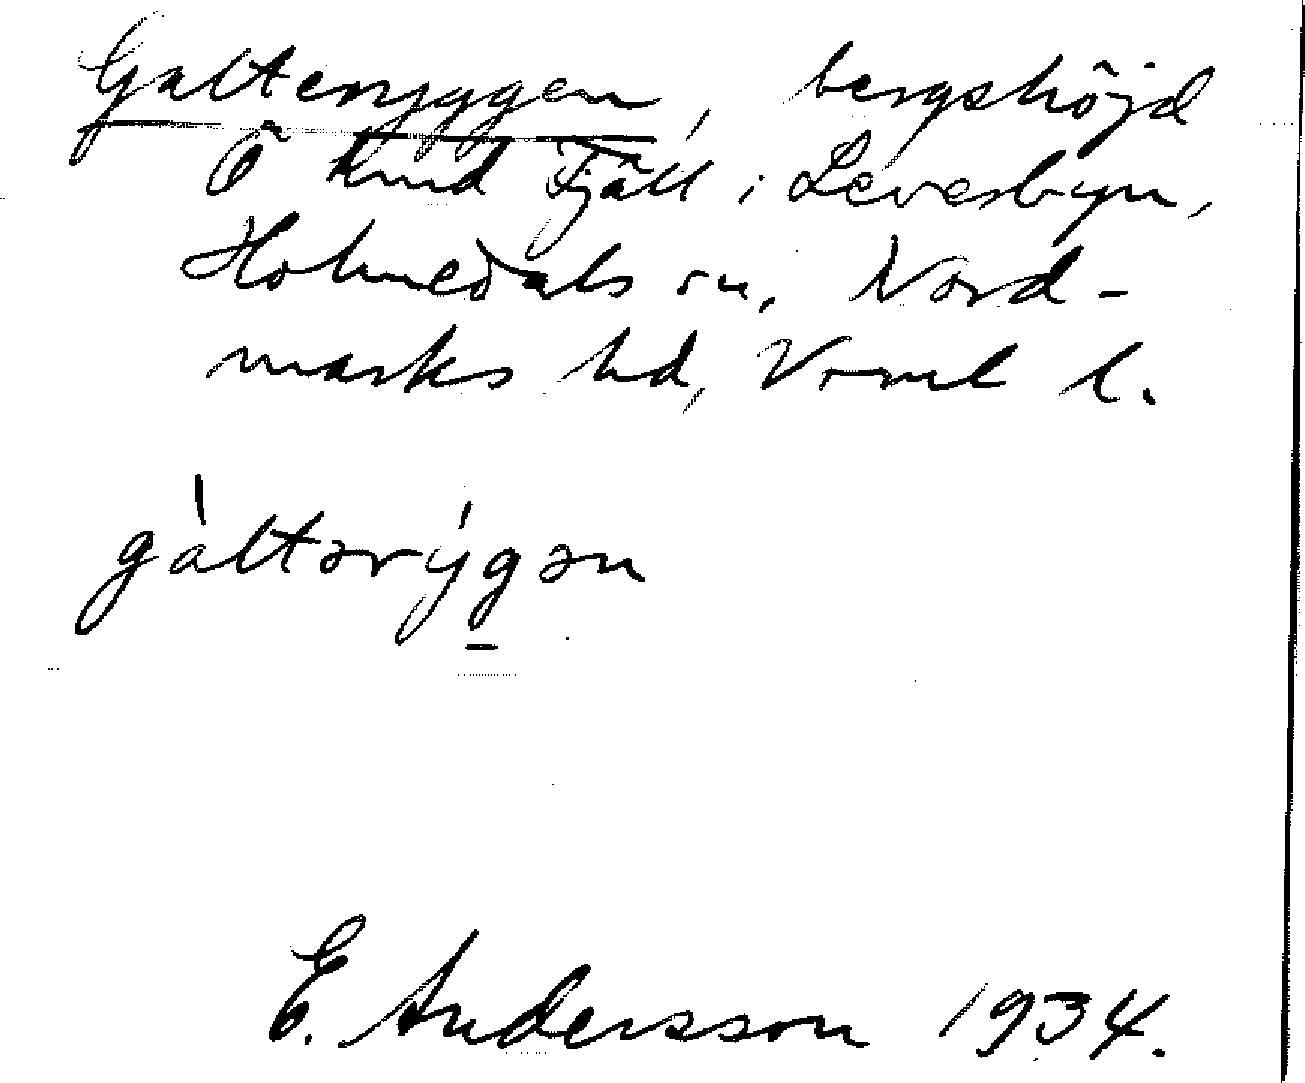 Galteryggen, bergshöjd
Ö hmd Fjäll i Levesbyn,
Holmedals sn, Nord-
marks hd, Vrml l.
gàltərýgən
E. Andersson 1934.